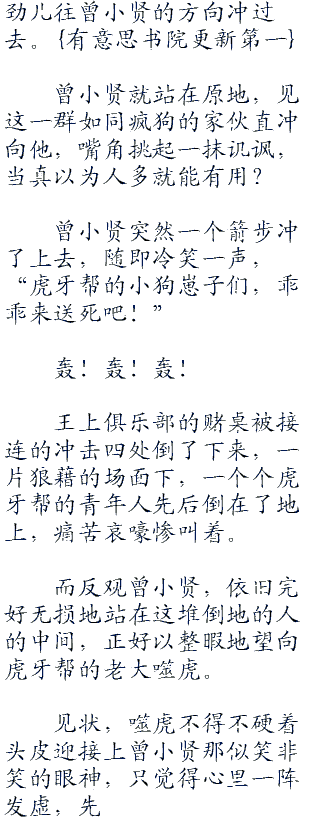 劲儿往曾小贤的方向冲过
去。{有意思书院更新第一}
曾小贤就站在原地，见
这一群如同疯狗的家伙直冲
向他，嘴角挑起一抹讥讽，
当真以为人多就能有用？
曾小贤突然一个箭步冲
了上去，随即冷笑一声，
“虎牙帮的小狗崽子们，乖
乖来送死吧！”
轰！轰！轰！
王上俱乐部的赌桌被接
连的冲击四处倒了下来，一
片狼藉的场面下，一个个虎
牙帮的青年人先后倒在了地
上，痛苦哀嚎惨叫着。
而反观曾小贤，依旧完
好无损地站在这堆倒地的人
的中间，正好以整暇地望向
虎牙帮的老大噬虎。
见状，噬虎不得不硬着
头皮迎接上曾小贤那似笑非
笑的眼神，只觉得心里一阵
发虚，先